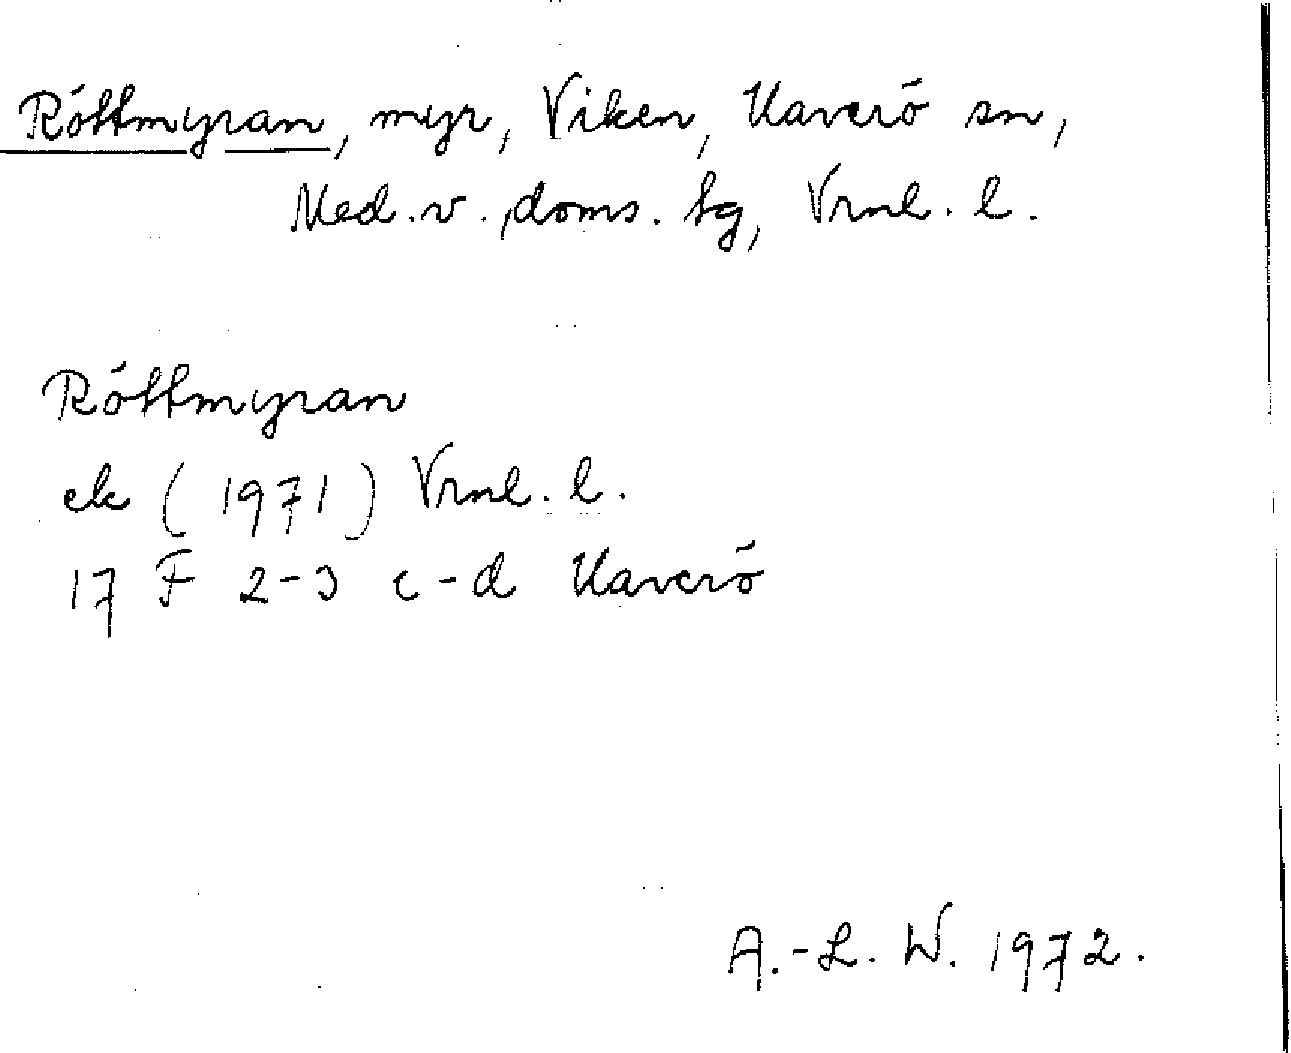 Röttmyran, myr, Viken, Haverö sn,
Med.v. doms. tg, Vrnl. l.
Röttmyran
ek (1971) Vrnl. l.
17 F 2-3 c-d Haverö
A.-L. W. 1972.